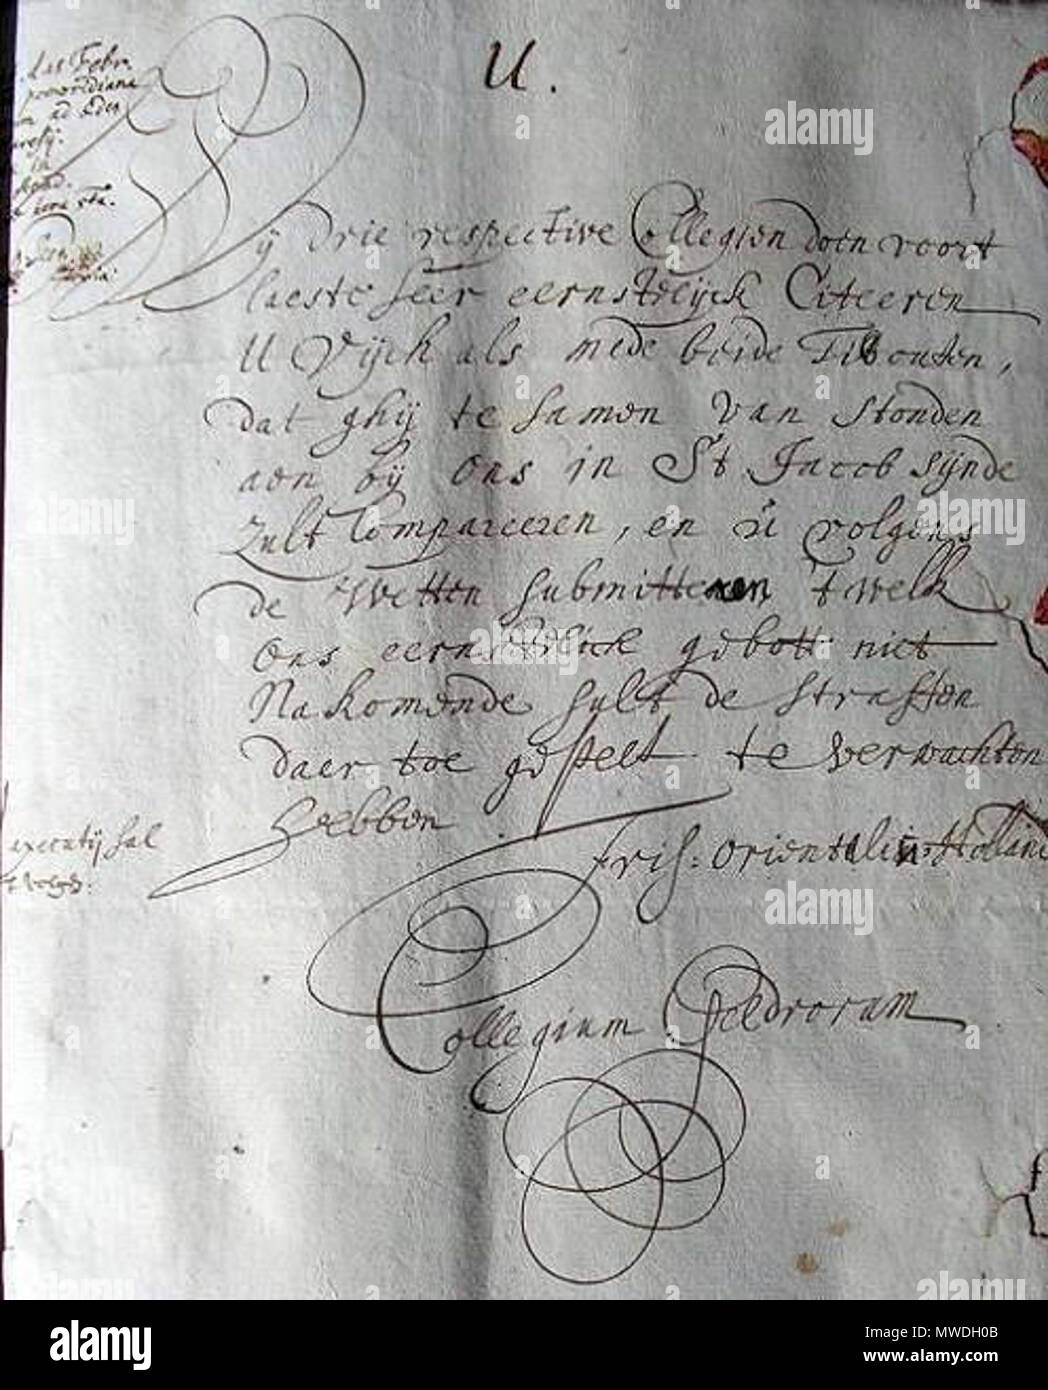 U.
das Febr.
ad Edes
Wij drie respective Collegien doen voort
laeste seer eernstelijck Citeeren
U Vijch als mede beide Tibouten,
dat ghij te samen van stonden
aen bij ons in St Jacob sijnde
zult Compareeren, en u volgens
de Wetten submitteren, 't welk
ons eernstelick gebott niet
Nakomende sult de straffen
daer toe gestelt te verwachten
hebben
executij sal
Fris: orientalis Hollan
Collegium Geldrorum
alamy
Image ID: MWDH0B
www.alamy.com